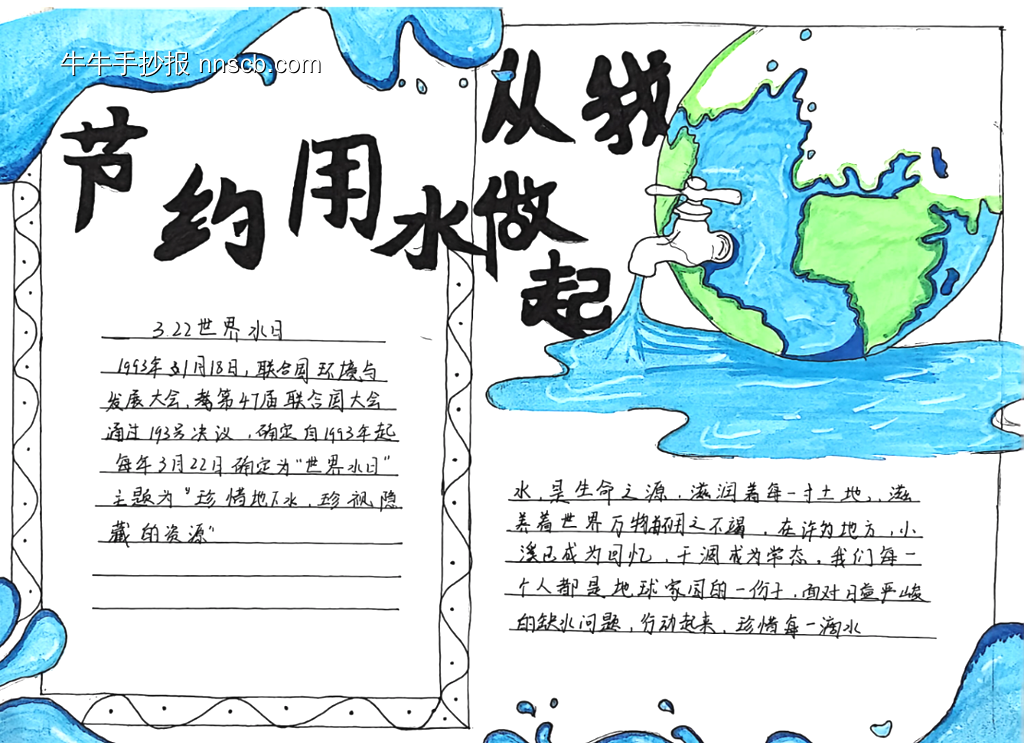 牛牛手抄报 nnscb.com
节约用水
从我
做
起
3.22世界水日
1993年1月18日，联合国环境与
发展大会，第47届联合国大会
通过193号决议，确定自1993年起
每年3月22日确定为"世界水日"
主题为"珍惜地下水，珍视隐
藏的资源"
水，是生命之源，滋润着每一寸土地，滋
养着世界万物，用之不竭，在许多地方，小
溪已成为回忆，干涸成为常态。我们每一
个人都是地球家园的一份子，面对日益严峻
的缺水问题，行动起来，珍惜每一滴水